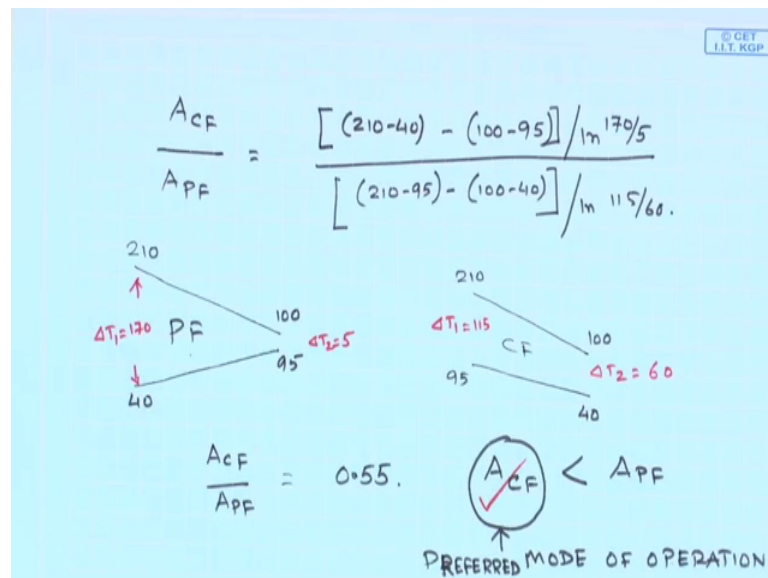 © CET
I.I.T. KGP
A_CF / A_PF = [(210-40) - (100-95)] / ln 170/5
[(210-95) - (100-40)] / ln 115/60.
210
ΔT₁=170 PF
100
95
ΔT₂=5
40
210
ΔT₁=115
CF
100
95
ΔT₂=60
40
A_CF / A_PF = 0.55. A_CF < A_PF
PREFERRED MODE OF OPERATION